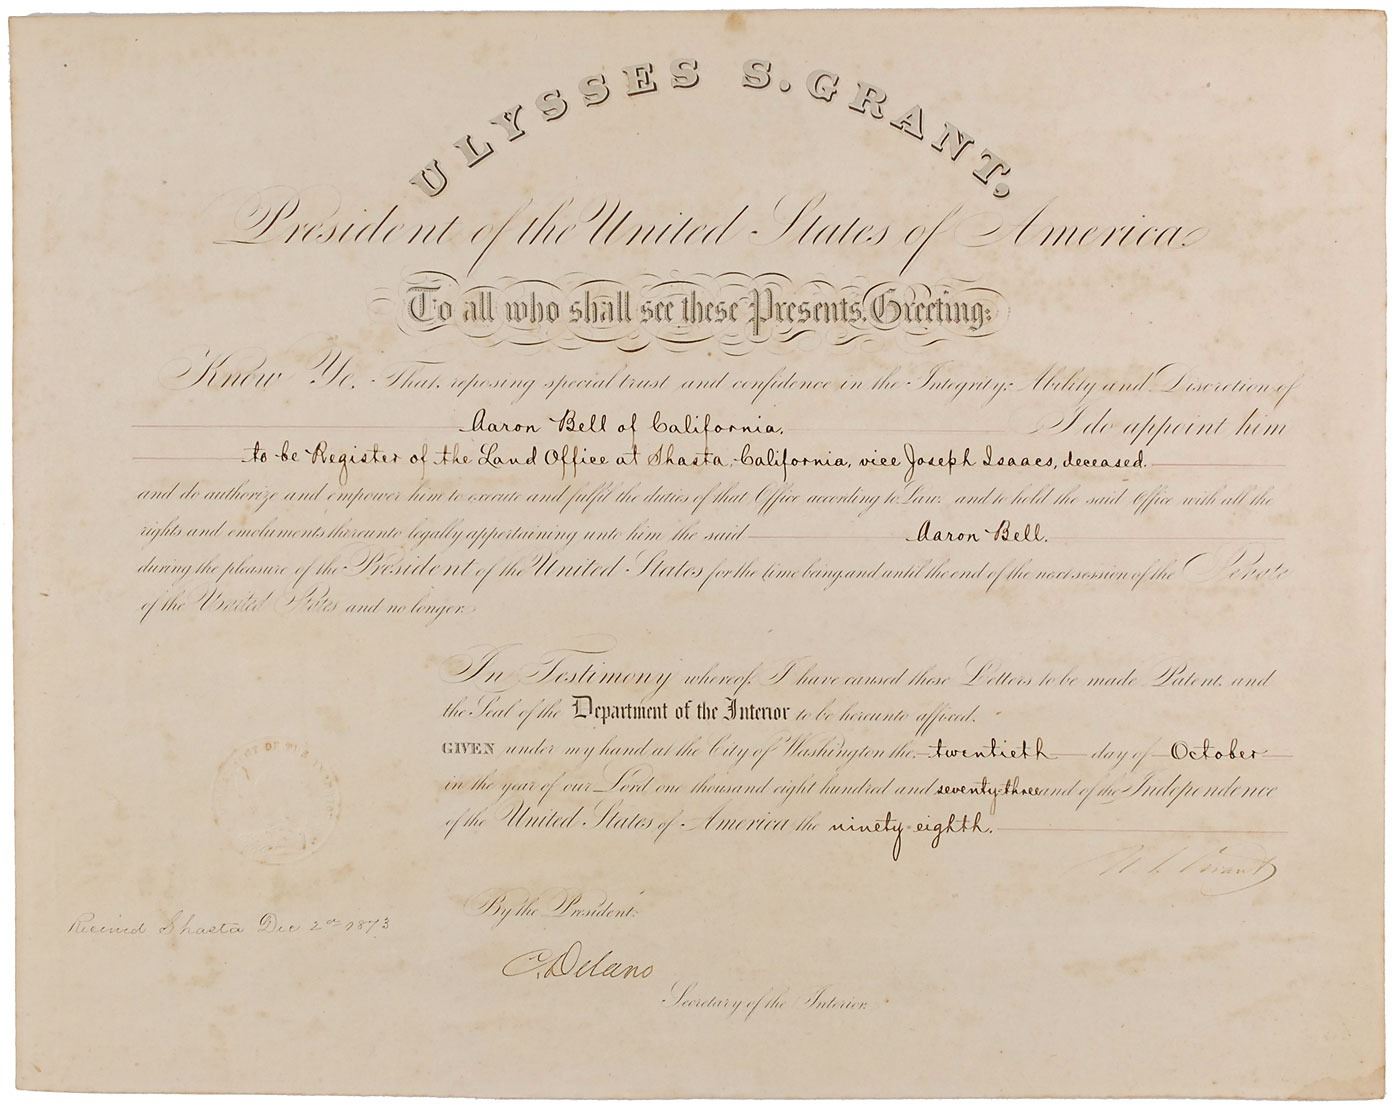 ULYSSES S. GRANT.
President of the United States of America.
To all who shall see these Presents, Greeting:
Know Ye, That, reposing special trust and confidence in the Integrity, Ability and Discretion of
Aaron Bell of California, I do appoint him
to be Register of the Land Office at Shasta, California, vice Joseph Isaacs, deceased.
and do authorize and empower him to execute and fulfil the duties of that Office according to Law, and to hold the said Office with all the
rights and emoluments thereunto legally appertaining unto him the said Aaron Bell.
during the pleasure of the President of the United States for the time being, and until the end of the next session of the Senate
of the United States and no longer.
In Testimony whereof, I have caused these Letters to be made Patent, and
the Seal of the Department of the Interior to be hereunto affixed.
GIVEN under my hand at the City of Washington the twentieth day of October
in the year of our Lord one thousand eight hundred and seventy-three and of the Independence
of the United States of America the ninety-eighth.
U. S. Grant
By the President:
Received Shasta Dec 2nd 1873
C. Delano
Secretary of the Interior.